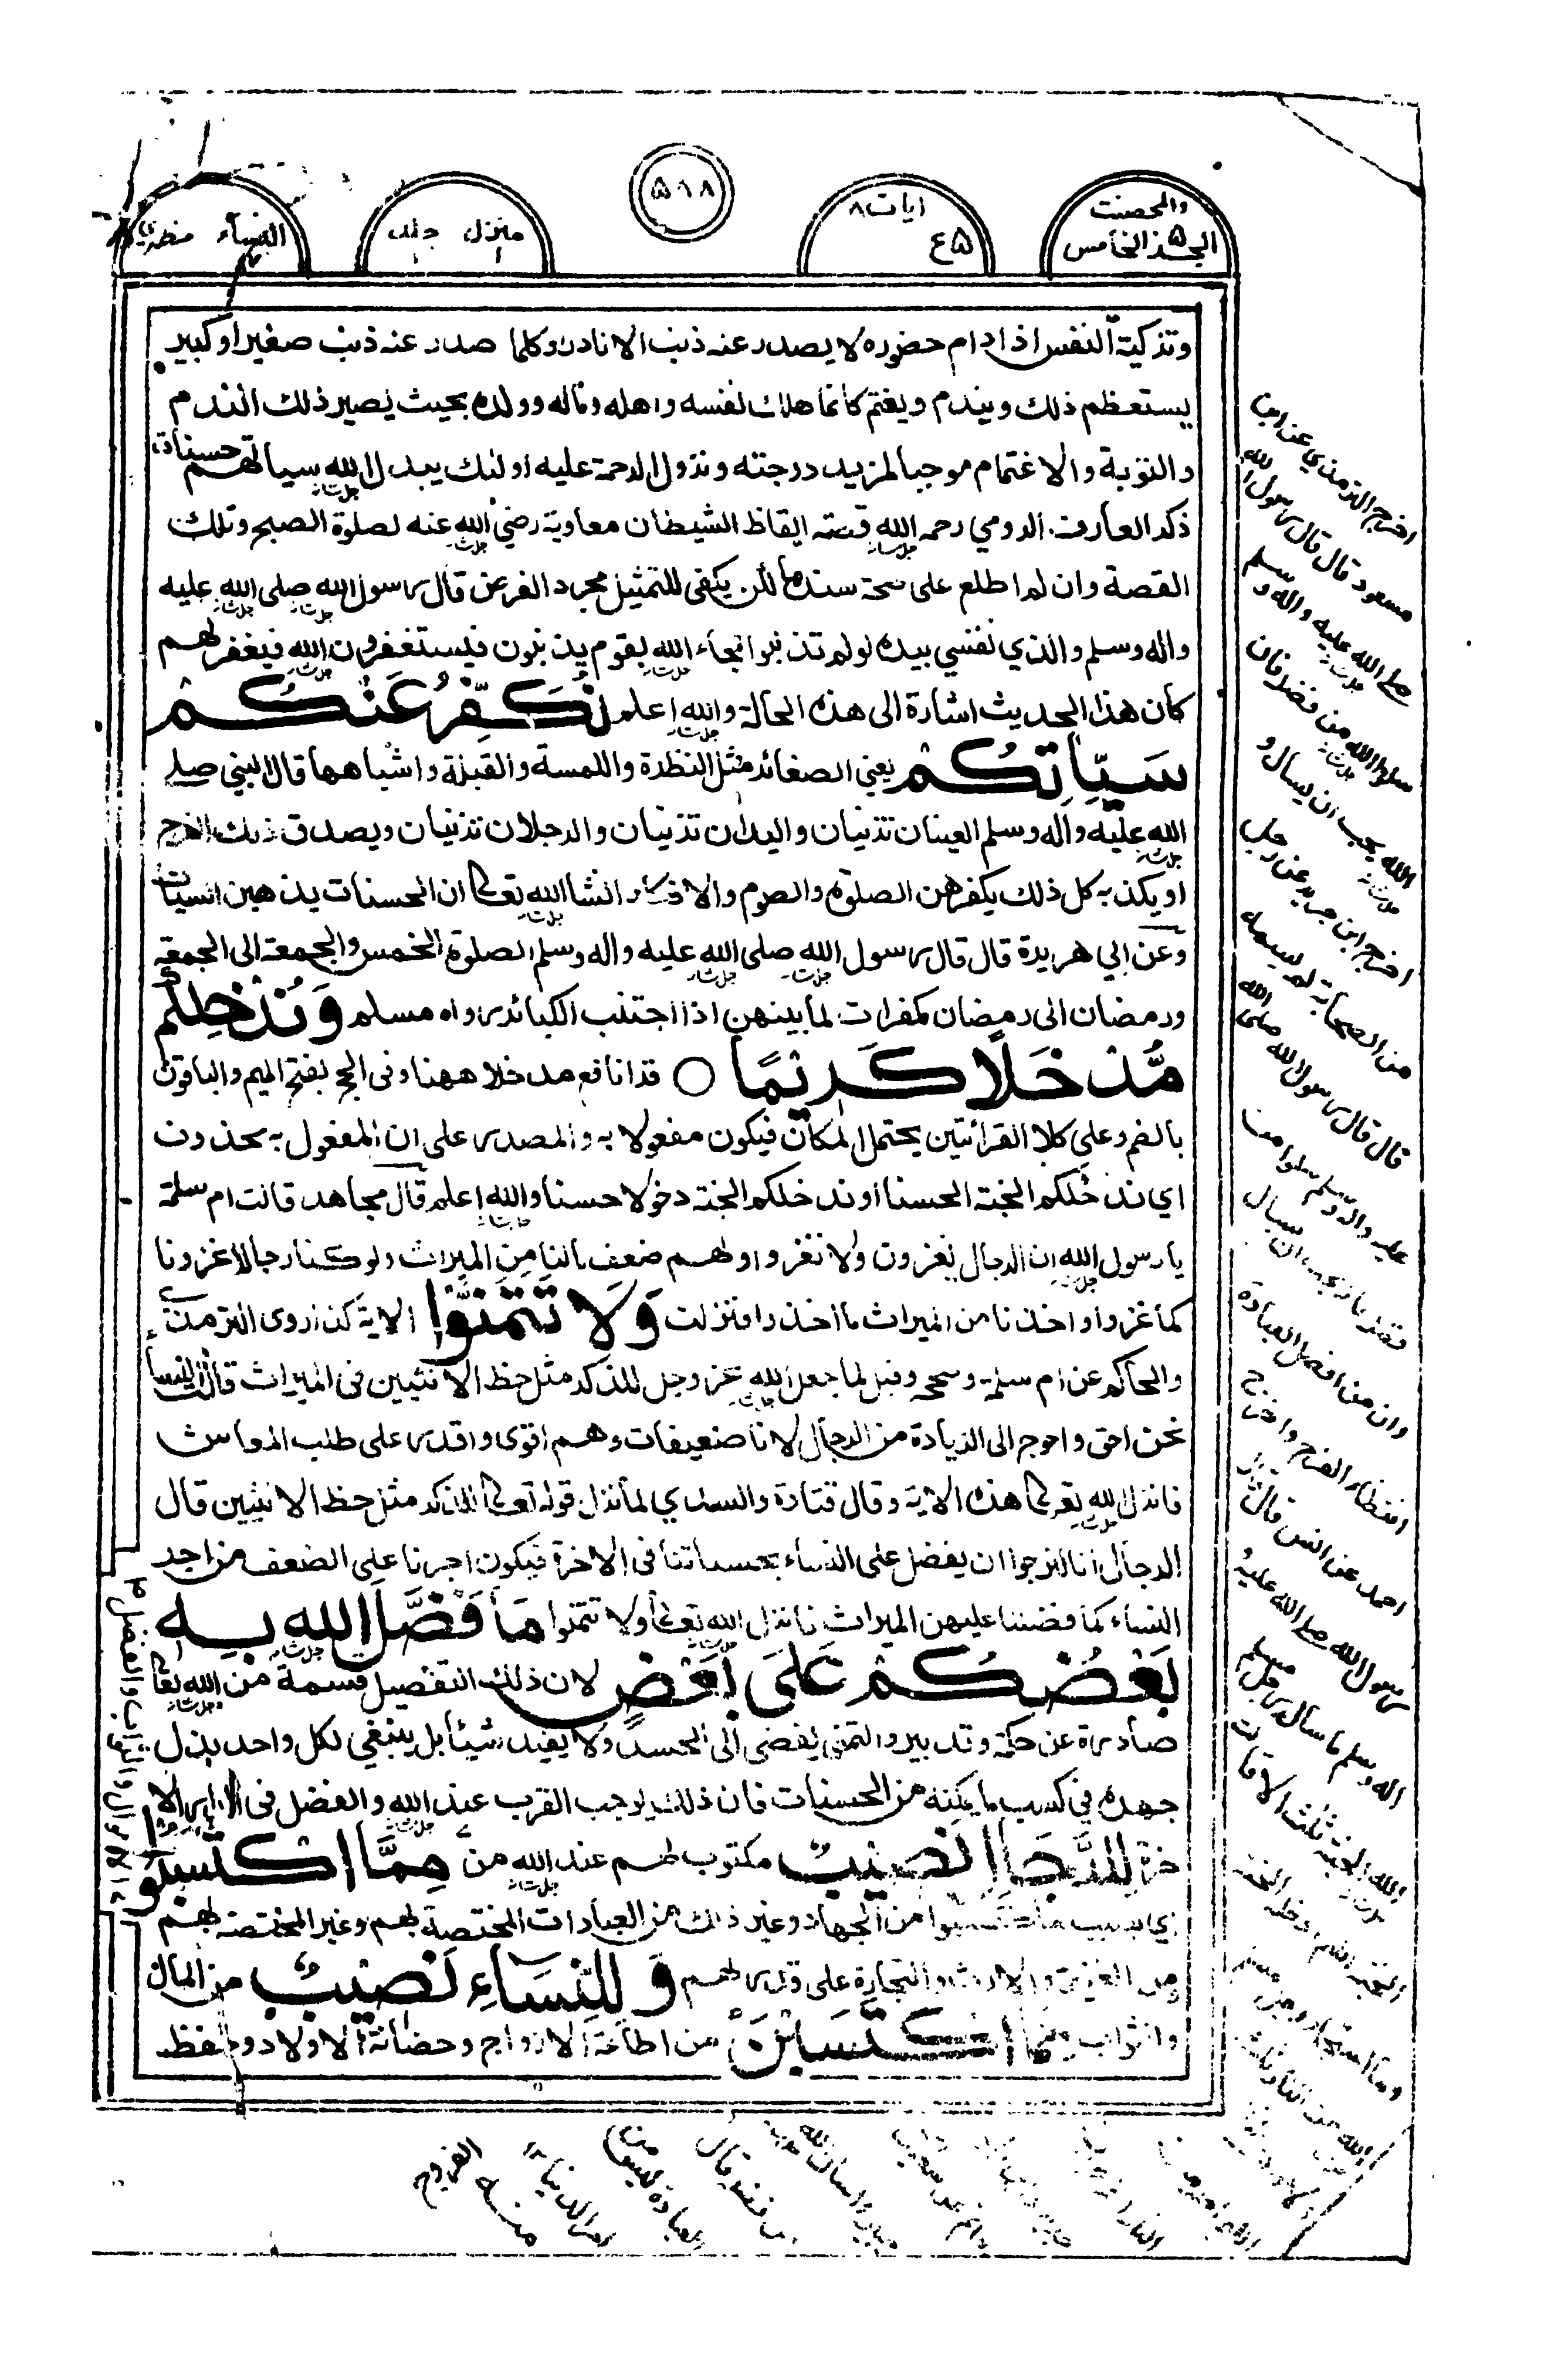 والمحصنت
الجذ الخامس ۵
ايات ۸
۵ع
۵۱۸
منزل جلد
النساء مظهري
وتزكية النفس اذا دام حضوره لا يصدر عنه ذنب الا نادرا وكلما صدر عنه ذنب صغير او كبير
يستعظم ذلك ويندم ويغتم كانما هلك نفسه واهله وماله وولده بحيث يصير ذلك الندم
والتوبة والاغتمام موجبا لمزيد درجته ونزول الرحمة عليه اولئك يبدل الله سياتهم حسنات
ذكر العارف الرومي رحمه الله قصة ايقاظ الشيطان معاوية رضي الله عنه لصلوة الصبح وتلك
القصة وان لم اطلع على صحة سندها لكن يكفى للتمثيل مجرد الفرض قال رسول الله صلى الله عليه
واله وسلم والذي نفسي بيده لو لم تذنبوا لجاء الله بقوم يذنبون فيستغفرون الله فيغفر لهم
كان هذا الحديث اشارة الى هذه الحالة والله اعلم نُكَفِّرْ عَنْكُمْ
سَيِّاٰتِكُمْ يعني الصغائر مثل النظرة واللمسة والقبلة واشباهها قال النبي صلى
الله عليه واله وسلم العينان تزنيان واليدان تزنيان والرجلان تزنيان ويصدق ذلك الفرج
او يكذبه كل ذلك يكفرهن الصلوة والصوم والاذكار انشا الله تعالى ان الحسنات يذهبن السيات
وعن ابي هريرة قال قال رسول الله صلى الله عليه واله وسلم الصلوة الخمس والجمعة الى الجمعة
ورمضان الى رمضان مكفرات لما بينهن اذا اجتنب الكبائر رواه مسلم وَنُدْخِلْكُمْ
مُّدْخَلًا كَرِيْمًا ○ قرا نافع مدخلا ههنا وفى الحج بفتح الميم والباقون
بالضم وعلى كلا القرائتين يحتمل المكان فيكون مفعولا به والمصدر على ان المفعول به محذوف
اي ندخلكم الجنة الحسنا او ندخلكم الجنة دخولا حسنا والله اعلم قال مجاهد قالت ام سلمة
يا رسول الله ان الرجال يغزون ولا نغزوا ولهم ضعف مالنا من الميراث ولو كنا رجالا غزونا
كما غزوا واخذنا من الميراث ما اخذوا فنزلت وَلَا تَتَمَنَّوْا الاية كذا روى الترمذي
والحاكم عن ام سلمة وصححه وقيل لما جعل الله عز وجل للذكر مثل حظ الانثيين فى الميراث قالت النسا
نحن احق واحوج الى الزيادة من الرجال لانا ضعيفات وهم اقوى واقدر على طلب المعاش
فانزل الله تعالى هذه الاية وقال قتادة والسدي لما نزل قوله تعالى للذكر مثل حظ الانثيين قال
الرجال انا لنرجوا ان يفضل على النساء بحسناتنا فى الاخرة فيكون اجرنا على الضعف من اجر
النساء كما فضلنا عليهن الميراث فانزل الله تعالى ولا تتمنوا مَا فَضَّلَ اللّٰهُ بِهٖ
بَعْضَكُمْ عَلٰى بَعْضٍ لان ذلك التفضيل قسمة من الله تعالى
صادرة عن حكمة وتدبير والتمنى يفضى الى الحسد ولا يفيد شيئا بل ينبغي لكل واحد بذل
جهده في كسب ما يمكنه من الحسنات فان ذلك يوجب القرب عند الله والفضل فى الدار الا
خرة لِلرِّجَالِ نَصِيْبٌ مكتوب لهم عند الله من مِمَّا اكْتَسَبُوْا
اي بسبب ما اكتسبوا من الجهاد وغير ذلك من العبادات المختصة بهم وغير المختصة بهم
من الغزو والارث والتجارة على قدر لهم وَلِلنِّسَاءِ نَصِيْبٌ من المال
والثواب مِّمَّا اكْتَسَبْنَ من اطاعة الازواج وحضانة الاولاد وحفظ
اخرج الترمذي عن ابن
مسعود قال قال رسول الله
صلى الله عليه واله وسلم
سلوا الله من فضله فان
الله يحب ان يسال و
اخرج ابن جرير عن رجل
من الصحابة لم يسمه
قال قال رسول الله صلى الله
عليه واله وسلم سلوا من
فضله يحب ان يسال
وان من افضل العبادة
انتظار الفرج واخرج
احمد عن انس قال قال
رسول الله صلى الله عليه
اله وسلم ما سال رجل مسلم
الله الجنة ثلث الا قالت
الجنة ادخله الجنة
وما استجار رجل
الله من النار
منح الفروج